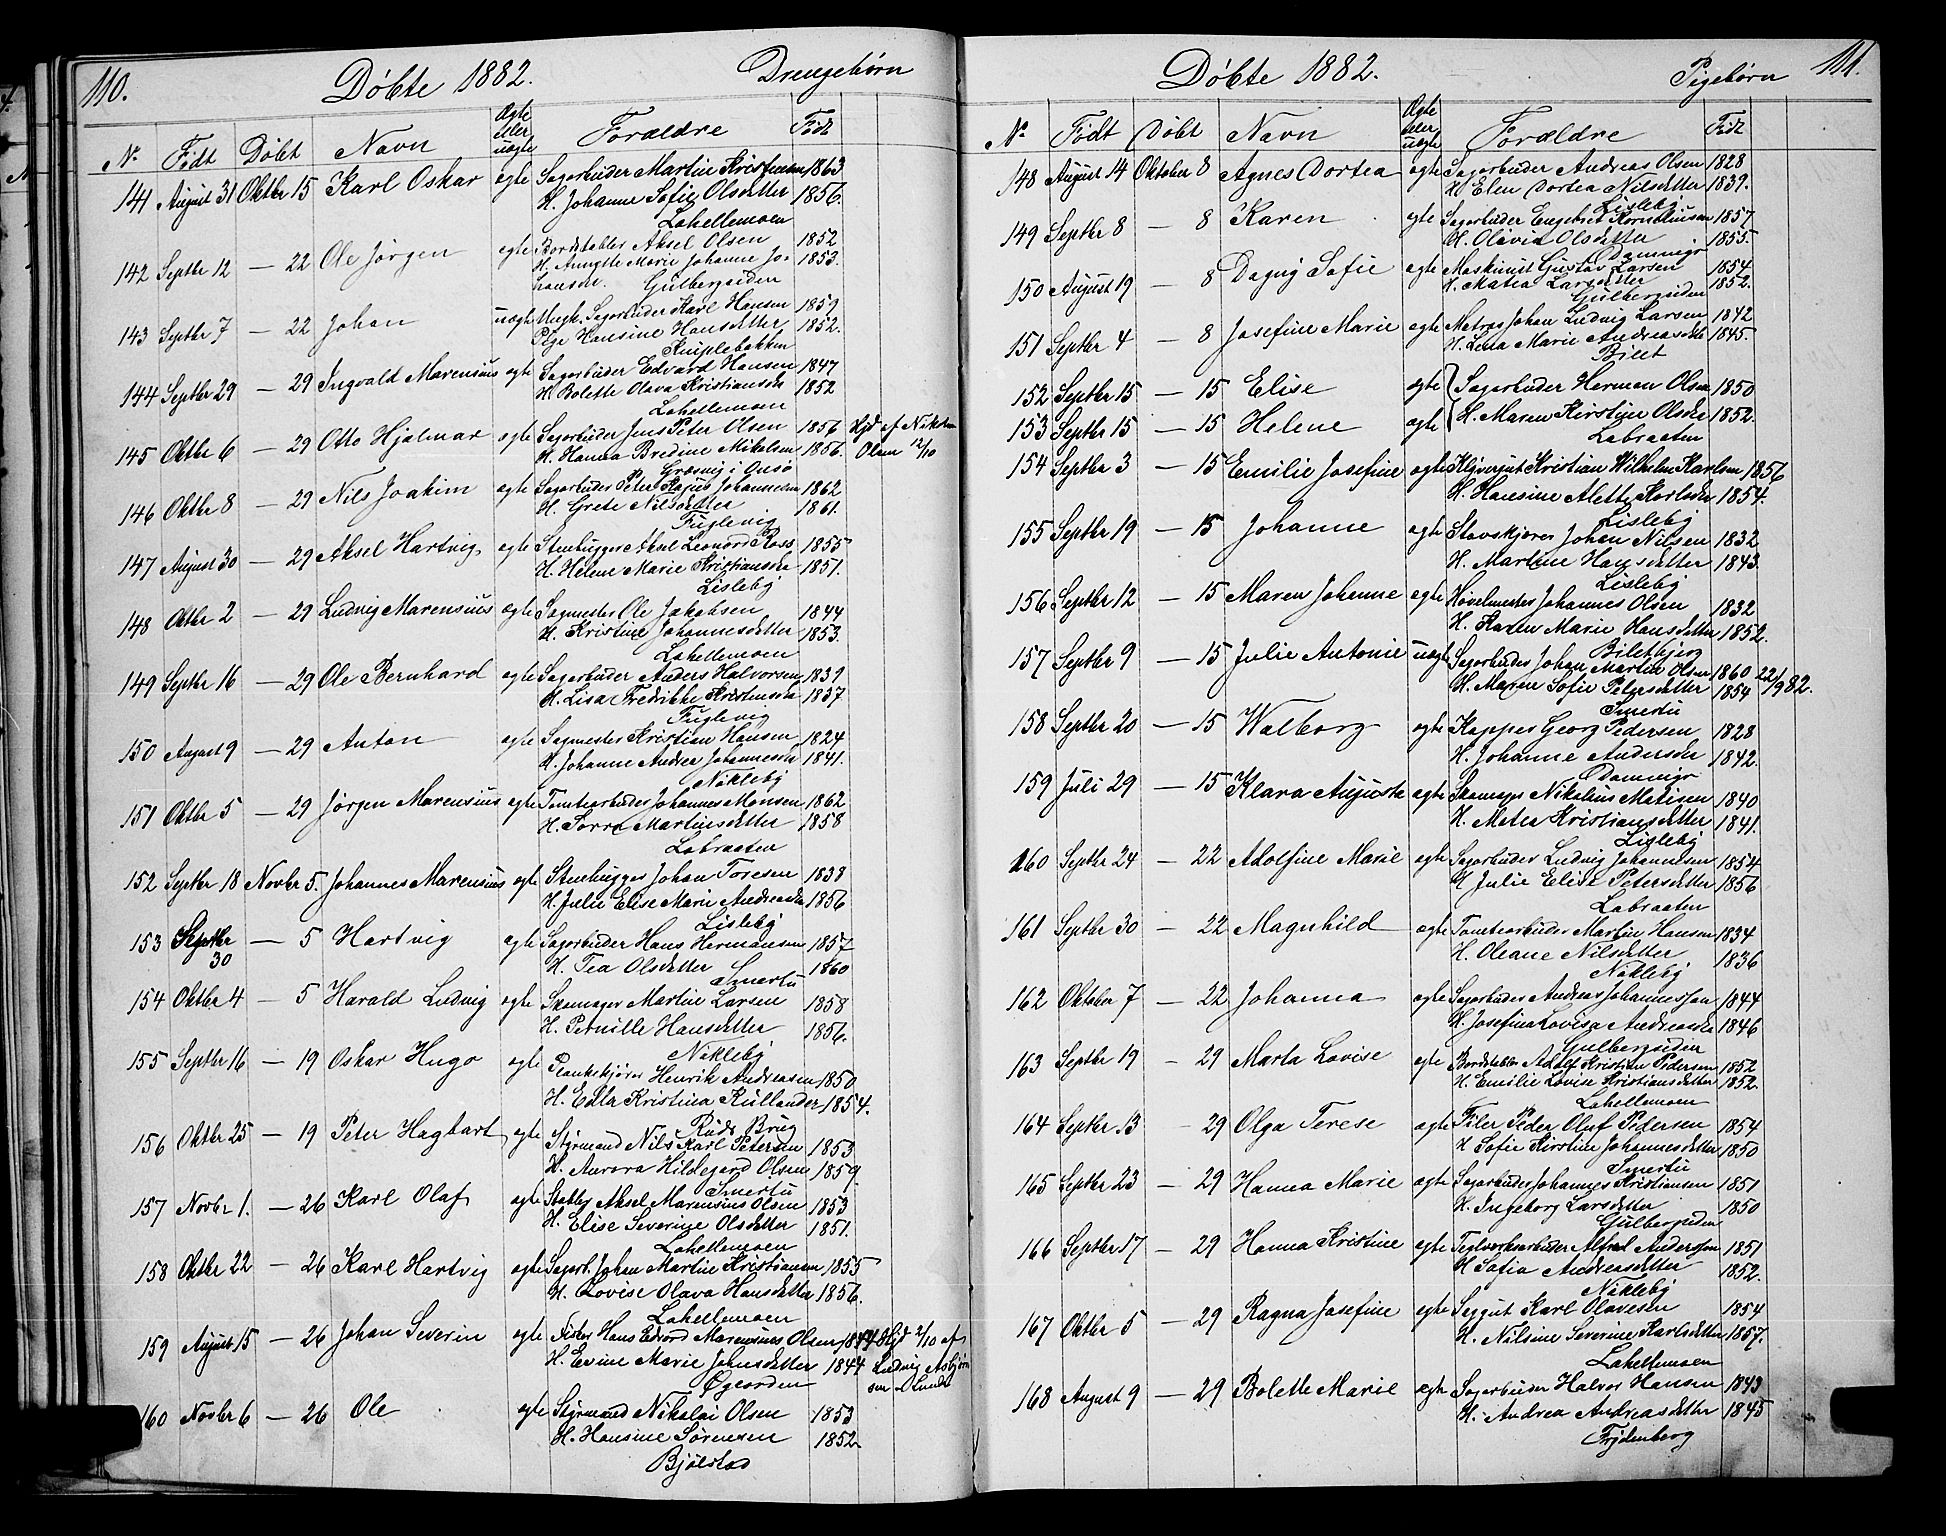 110.
Døbte 1882.
Drengebørn
No Født Døbt Navn Ægte eller uægte Forældre Født
141 August 31 Oktbr 15 Karl Oskar ægte Sagarbeider Martin Kristensen 1863
H. Johanne Sofie Olsdatter 1856.
Lahellemoen
142 Septbr 12 — 22 Ole Jørgen ægte Bordstabler Aksel Olsen 1852
H. Annette Marie Johanne Jo- 1853.
hansdr. Gulbergsiden
143 Septbr 7 — 22 Johan uægte Ungk. Sagarbeider Karl Hansen 1859
Pige Hansine Hansdatter 1852.
Kniplebakken
144 Septbr 29 — 29 Ingvald Marensius ægte Sagarbeider Edvard Hansen 1847
H. Bolette Olava Kristiansdr 1852
Lahellemoen
145 Oktbr 6 — 29 Otto Hjalmar ægte Sagarbeider Jens Peter Olsen 1856 Hjd af
H. Hanna Bredine Mikelsen 1856. Olsen 12/10
Græsvig i Onsø
146 Oktbr 8 — 29 Nils Joakim ægte Sagarbeider Peter Johannesen 1862
H. Grete Nilsdatter 1861.
Fuglevig
147 August 30 — 29 Aksel Hartvig ægte Stenhugger Aksel Leonard Ross 1855
H. Helene Marie Kristiansdr 1851.
Lisleby
148 Oktbr 2 — 29 Ludvig Marensius ægte Sagmester Ole Jakobsen 1844
H. Kristine Johannesdatter 1853.
Lahellemoen
149 Septbr 16 — 29 Ole Bernhard ægte Sagarbeider Anders Halvorsen 1839
H. Lisa Fredrikke Kristensdr 1837.
Fuglevig
150 August 9 — 29 Anton ægte Sagmester Kristian Hansen 1824
H. Johanne Andrea Johannesdr 1841.
Nøkleby
151 Oktbr 5 — 29 Jørgen Marensius ægte Tomtearbeider Johannes Monsen 1862
H. Martinsdatter 1858
Labraaten
152 Septbr 18 Novbr 5. Johannes Marensius ægte Stenhugger Johan Toresen 1838
H. Julie Elise Marie Andreasdr 1856
Lisleby
153 Septbr 30 — 5 Hartvig ægte Sagarbeider Hans Hermansen 1857
H. Tea Olsdatter 1860
Smertu
154 Oktbr 4 — 5 Harald Ludvig ægte Skomager Martin Larsen 1858
H. Pernille Hansdatter 1856.
Nøkleby
155 Septbr 16 — 19 Oskar Hugo ægte Plankekjører Henrik Andreasen 1850
H. Edla Kristina Kullander 1854.
Ruds Brug
156 Oktbr 25 — 19 Peter Hagbart ægte Styrmand Nils Karl Petersen 1853
H. Aurora Hildegard Olsen 1859.
Smertu
157 Novbr 1. — 26 Karl Olaf ægte Aksel Marensius Olsen 1853
H. Elise Severine Olsdatter 1851.
Lahellemoen
158 Oktbr 22 — 26 Karl Hartvig ægte Sagarb. Johan Martin Kristiansen 1855
H. Lovise Olava Hansdatter 1856.
Lahellemoen
159 August 15 — 26 Johan Severin ægte Fisker Hans Edvard Marensius Olsen 1844 Hjd 2/10 af
H. Evine Marie Johnsdatter 1844 Ludvig Asbjørn
Øgaarden
160 Novbr 6 — 26 Ole ægte Styrmand Nikolai Olsen 1853
H. Hansine Sørensen 1852
Bjølstad
111.
Døbte 1882.
Pigebørn
No Født Døbt Navn Ægte eller uægte Forældre Født
148 August 14 Oktober 8 Agnes Dortea ægte Sagarbeider Andreas Olsen 1828
H. Elen Dortea Nilsdatter 1839.
Lisleby
149 Septbr 8 — 8 Karen ægte Sagarbeider Engebret Korneliusen 1857
H. Olavia Olsdatter 1855.
Dammyr
150 August 19 — 8 Dagny Sofie ægte Maskinist Gustav Larsen 1854
H. Matia Larsdatter 1852.
Gulbergsiden
151 Septbr 4 — 8 Josefine Marie ægte Matros Johan Ludvig Larsen 1842
H. Lena Marie Andreasdtr 1845.
Bilet
152 Septbr 15 — 15 Elise ægte Sagarbeider Herman Olsen 1850
153 Septbr 15 — 15 Helene ægte H. Maren Kirstine Olsdtr 1852.
Labraaten
154 Septbr 3 — 15 Emilie Josefine ægte Kløvergut Kristian Wilhelm Karlsen 1856
H. Hansine Alette Karlsdtr 1854.
Lisleby
155 Septbr 19 — 15 Johanne ægte Stavskjærer Johan Nilsen 1832
H. Martine Hansdatter 1843.
Lisleby
156 Septbr 12 — 15 Maren Johanne ægte Høvelmester Johannes Olsen 1832
H. Karen Marie Hansdatter 1852.
Biletbjerg
157 Septbr 9 — 15 Julie Antonie uægte Sagarbeider Johan Martin Olsen 1860 22/9 82.
H. Maren Sofie Petersdatter 1854
Smertu
158 Septbr 20 — 15 Walborg ægte Kapper Georg Pedersen 1828
H. Johanne Andersdr 1842.
Dammyr
159 Juli 29 — 15 Klara Augusta ægte Skomager Nikolius Matisen 1840
H. Matea Kristiansdatter 1841.
Lisleby
160 Septbr 24 — 22 Adolfine Marie ægte Sagarbeider Ludvig Johannesen 1854
H. Julie Elise Petersdatter 1856
Labraaten
161 Septbr 30 — 22 Magnhild ægte Tomtearbeider Martin Hansen 1834
H. Oleane Nilsdatter 1836
Nøkleby
162 Oktober 7 — 22 Johanna ægte Sagarbeider Andreas Johannessen 1844
H. Josefina Lovisa Andreasdr 1846
Gulbergsiden
163 Septbr 19 — 29 Marta Lovise ægte Bordstabler Adolf Kristian Pedersen 1852
H. Emilie Lovise Kristiansdatter 1852.
Lahellemoen
164 Septbr 13 — 29 Olga Terese ægte Filer Peder Oluf Pedersen 1854
H. Sofie Kirstine Johannesdatter 1850
Smertu
165 Septbr 23 — 29 Hanna Marie ægte Sagarbeider Johannes Kristiansen 1851
H. Ingeborg Larsdatter 1850
Gulbergsiden
166 Septbr 17 — 29 Hanna Kristine ægte Teglverksarbeider Alfred Anderssen 1851
H. Sofia Andreasdatter 1852.
Nøkleby
167 Oktbr 5 — 29 Ragna Josefine ægte Saggut Karl Olavesen 1854
H. Nilsine Severine Karlsdatter 1857.
Lahellemoen
168 August 9 — 29 Bolette Marie ægte Sagarbeider Halvor Hansen 1843
H. Andrea Andreasdatter 1845
Frydenberg